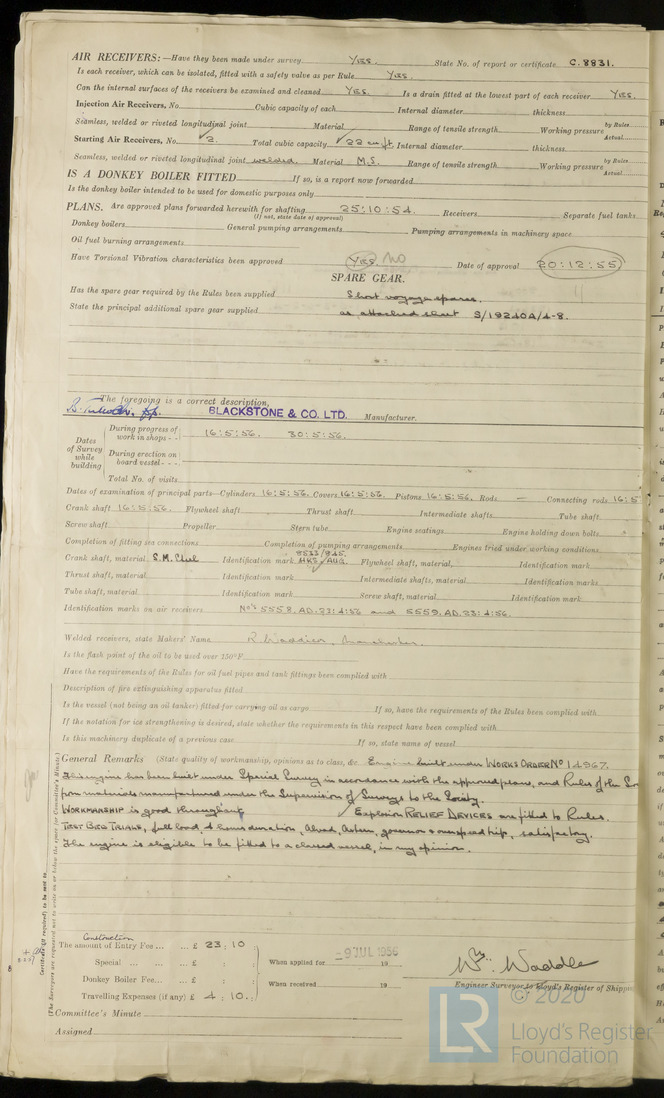 AIR RECEIVERS:—Have they been made under survey YES. State No. of report or certificate C.8831.
Is each receiver, which can be isolated, fitted with a safety valve as per Rule YES.
Can the internal surfaces of the receivers be examined and cleaned YES. Is a drain fitted at the lowest part of each receiver YES.
Injection Air Receivers, No. Cubic capacity of each Internal diameter thickness
Seamless, welded or riveted longitudinal joint Material Range of tensile strength Working pressure by Rules Actual
Starting Air Receivers, No. 2. Total cubic capacity 22 cu ft Internal diameter thickness
Seamless, welded or riveted longitudinal joint welded. Material M.S. Range of tensile strength Working pressure by Rules Actual
IS A DONKEY BOILER FITTED If so, is a report now forwarded
Is the donkey boiler intended to be used for domestic purposes only
PLANS. Are approved plans forwarded herewith for shafting 25:10:54. Receivers Separate fuel tanks
(If not, state date of approval)
Donkey boilers General pumping arrangements Pumping arrangements in machinery space
Oil fuel burning arrangements
Have Torsional Vibration characteristics been approved YES NO Date of approval 20:12:55
SPARE GEAR.
Has the spare gear required by the Rules been supplied Short voyage spares.
State the principal additional spare gear supplied as attached sheet S/19240A/4-8.
The foregoing is a correct description,
BLACKSTONE & CO. LTD. Manufacturer.
Dates of Survey while building
During progress of work in shops - - 16:5:56. 30:5:56.
During erection on board vessel - - -
Total No. of visits
Dates of examination of principal parts—Cylinders 16:5:56. Covers 16:5:56. Pistons 16:5:56. Rods — Connecting rods 16:5
Crank shaft 16:5:56. Flywheel shaft Thrust shaft Intermediate shafts Tube shaft
Screw shaft Propeller Stern tube Engine seatings Engine holding down bolts
Completion of fitting sea connections Completion of pumping arrangements Engines tried under working conditions
Crank shaft, material S.M. Steel Identification mark Flywheel shaft, material, Identification mark
Thrust shaft, material Identification mark Intermediate shafts, material Identification marks
Tube shaft, material Identification mark Screw shaft, material Identification mark
Identification marks on air receivers Nos 5558. AD. 23:4:56 and 5559. AD. 23:4:56.
Welded receivers, state Makers' Name
Is the flash point of the oil to be used over 150°F.
Have the requirements of the Rules for oil fuel pipes and tank fittings been complied with
Description of fire extinguishing apparatus fitted
Is the vessel (not being an oil tanker) fitted for carrying oil as cargo If so, have the requirements of the Rules been complied with
If the notation for ice strengthening is desired, state whether the requirements in this respect have been complied with
Is this machinery duplicate of a previous case If so, state name of vessel
General Remarks (State quality of workmanship, opinions as to class, &c. Engine built under WORKS ORDER No 14967.
This engine has been built under Special Survey in accordance with the approved plans, and Rules of the So
from materials manufactured under the supervision of Surveys to the Society.
WORKMANSHIP is good throughout. Explosion RELIEF DEVICES are fitted to Rules.
TEST BED TRIALS, full load, 4 hours duration, Ahead, Astern, governor & overspeed trip, satisfactory.
The engine is eligible to be fitted to a classed vessel, in my opinion.
Construction
The amount of Entry Fee ... £ 23 : 10 :
Special ... ... £
Donkey Boiler Fee... ... £
Travelling Expenses (if any) £ 4 : 10. :
When applied for -9 JUL 1956 19
When received 19
Wm. Waddle
Engineer Surveyor to Lloyd's Register of Shipping
Committee's Minute
Assigned
(The Surveyors are requested not to write on or below the space for Committee's Minute.)
© 2020
LR
Lloyd's Register
Foundation